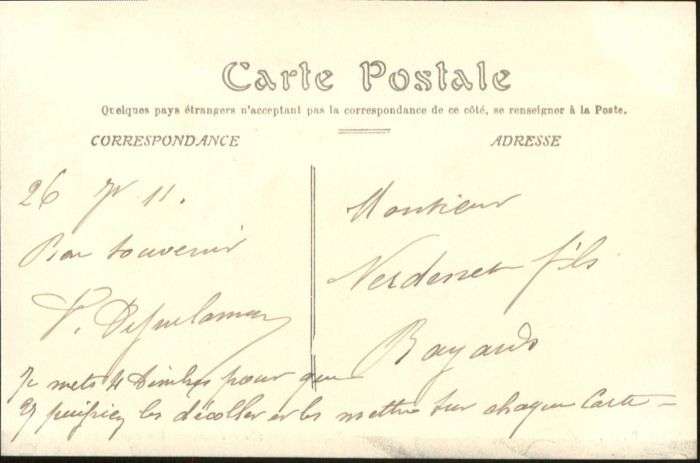 Carte Postale
Quelques pays étrangers n'acceptant pas la correspondance de ce côté, se renseigner à la Poste.
CORRESPONDANCE
ADRESSE
26 11.
Bon souvenir
Monsieur
fils
Bayards
Je mets 4 timbres pour que
les décoller et les mettre sur chaque Carte -